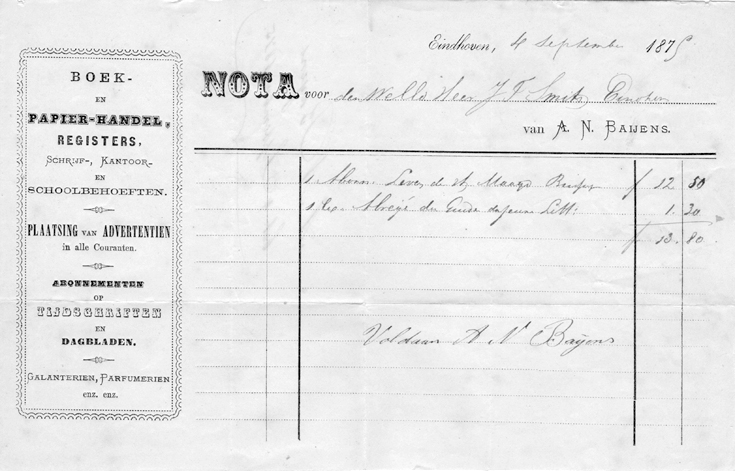 BOEK-
EN
PAPIER-HANDEL,
REGISTERS,
SCHRIJF-, KANTOOR-
EN
SCHOOLBEHOEFTEN.
PLAATSING VAN ADVERTENTIEN
in alle Couranten.
ABONNEMENTEN
OP
TIJDSCHRIFTEN
EN
DAGBLADEN.
GALANTERIEN, PARFUMERIEN
enz. enz.
Eindhoven, 4 September 1875
NOTA voor den WelEd Heer J F Smits
van A. N. BAIJENS.
1 Abonn. Leven de H. Maagd f 12 50
1 Ex. Abrégé du Guide 1. 30
f 13. 80
Voldaan A N Baijens